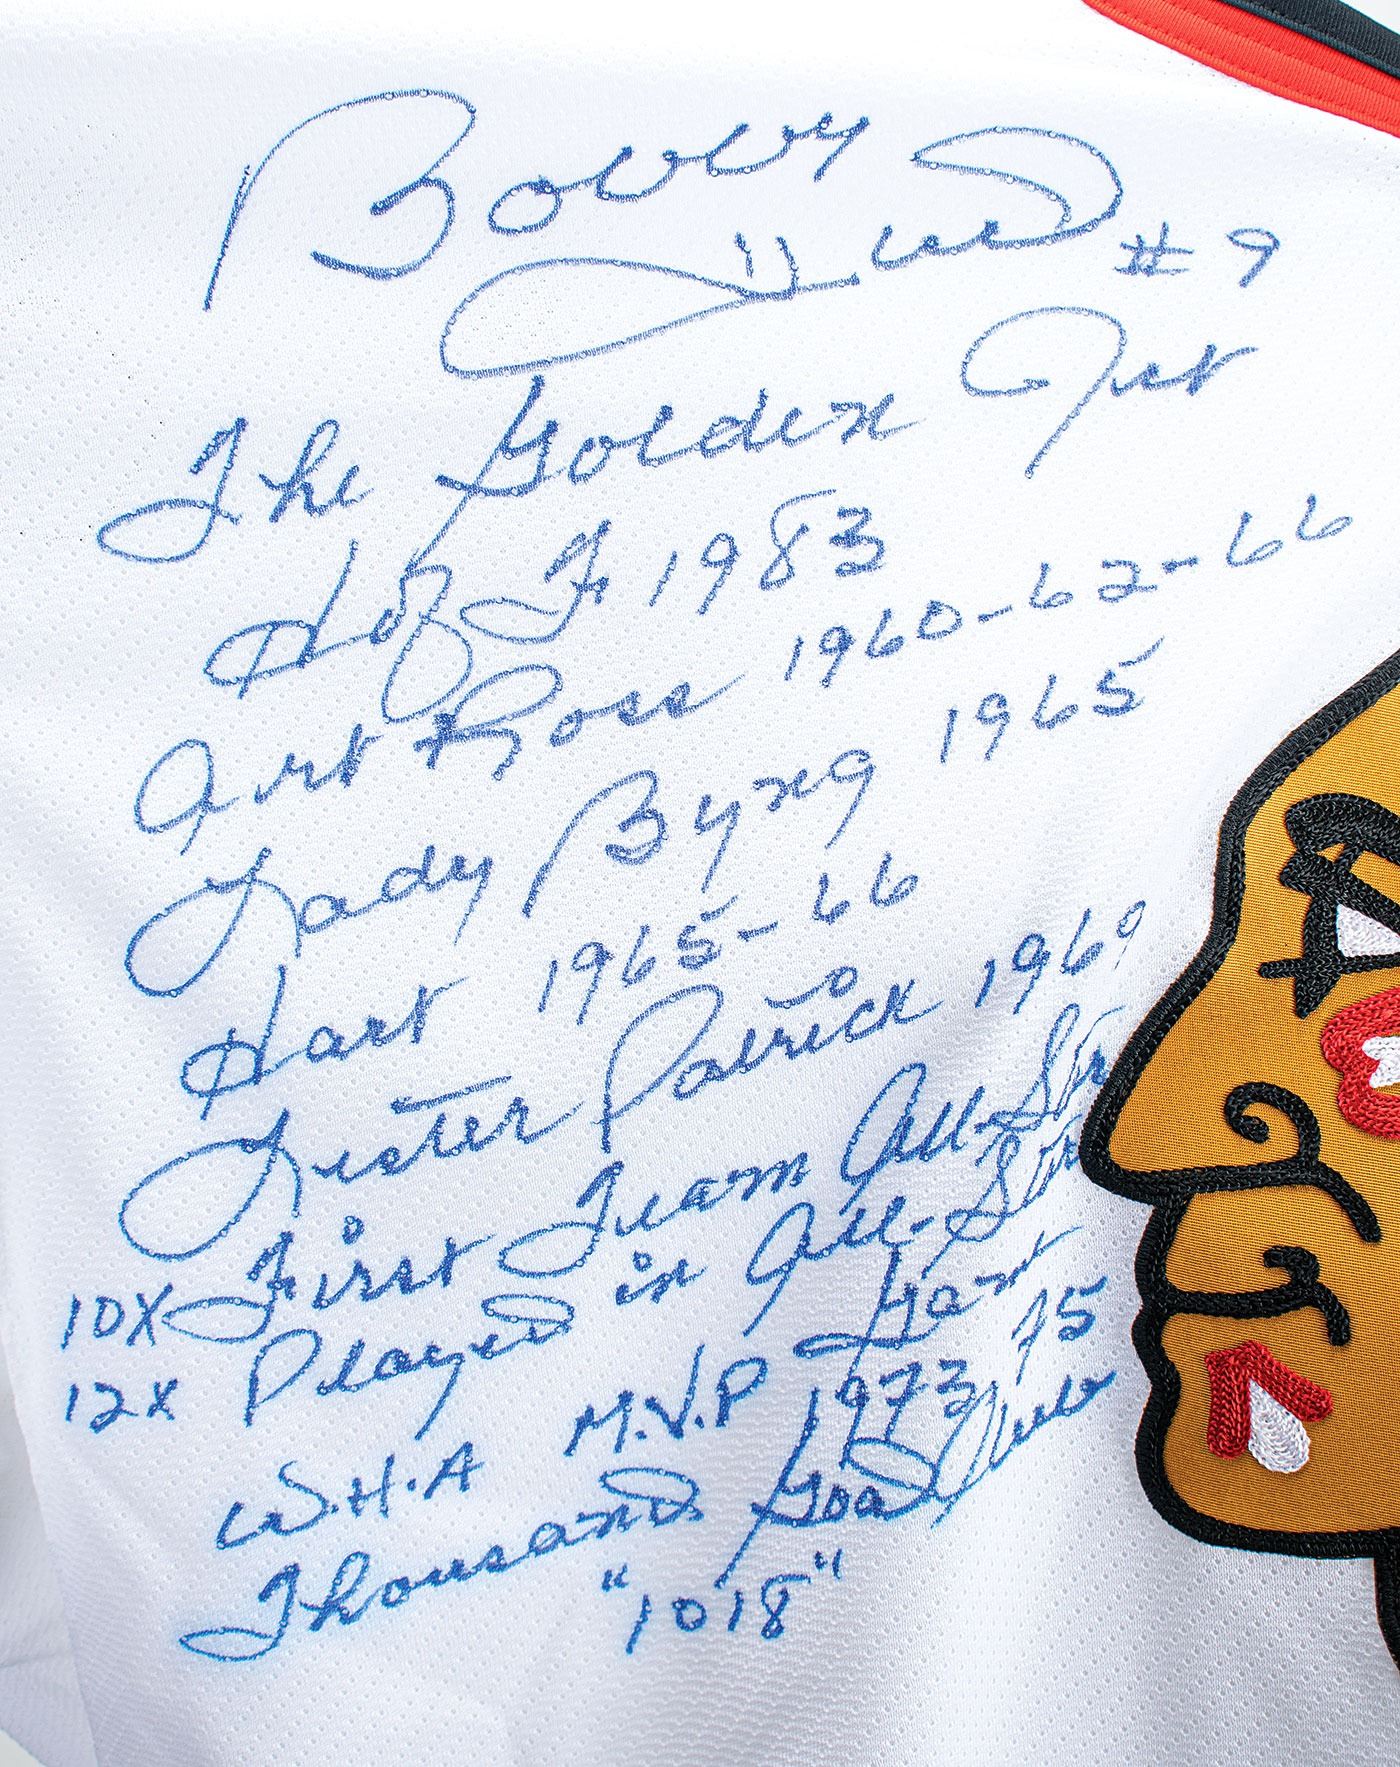 Bobby Hull #9
The Golden Jet
HofF 1983
Art Ross 1960-62-66
Lady Byng 1965
Hart 1965-66
Lester Patrick 1969
10X First Team All-Star
12X Played in All-Star Game
W.H.A M.V.P 1973 75
Thousand Goal Club
"1018"